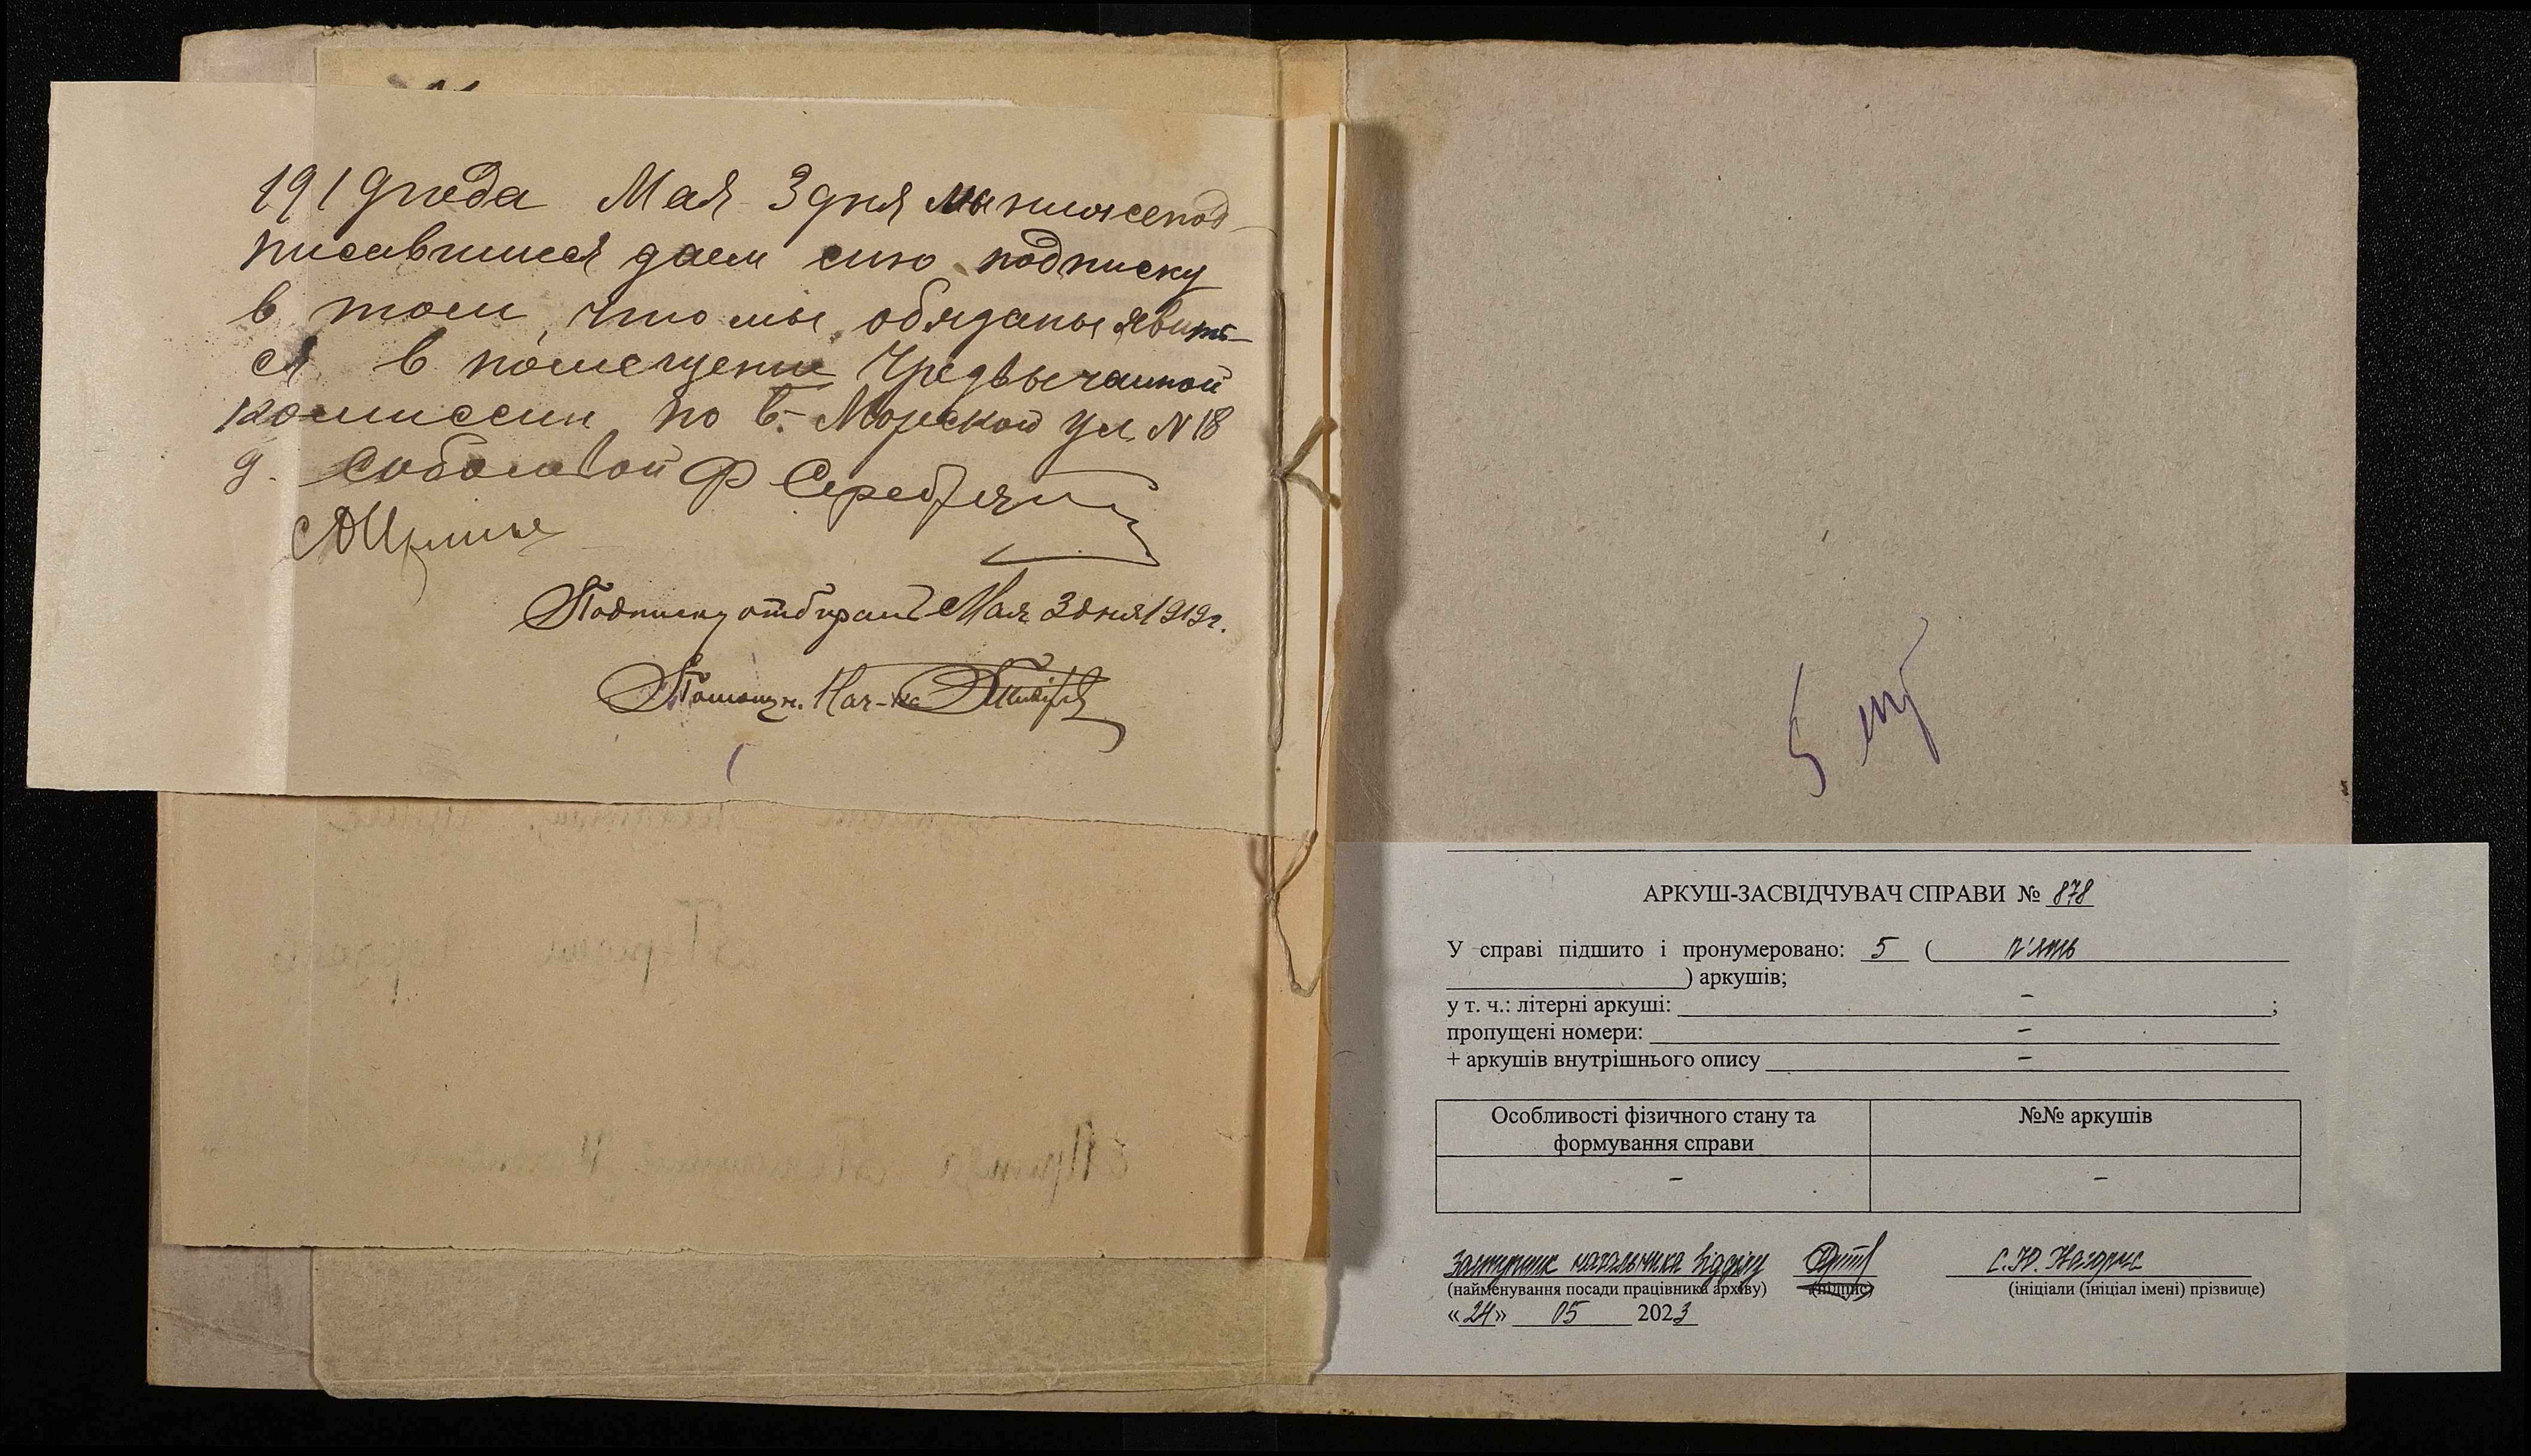 1919 года Мая 3 дня мы нижепод-
писавшиеся даем сию подписку
в том, что мы обязаны явить-
ся в помещении Чрезвычайной
комиссии по Б. Морской ул. N 18
д. Соболевой Ф Серебряный
Подписку отбирал Мая 3 дня 1919 г.
Помощн. Нач-ка
5
АРКУШ-ЗАСВІДЧУВАЧ СПРАВИ № 878
У справі підшито і пронумеровано: 5 ( п'ять
) аркушів;
у т. ч.: літерні аркуші: – ;
пропущені номери: –
+ аркушів внутрішнього опису –
Особливості фізичного стану та
формування справи
№№ аркушів
– –
Заступник начальника відділу С.Ю.
(найменування посади працівника архіву) (підпис) (ініціали (ініціал імені) прізвище)
«24» 05 2023